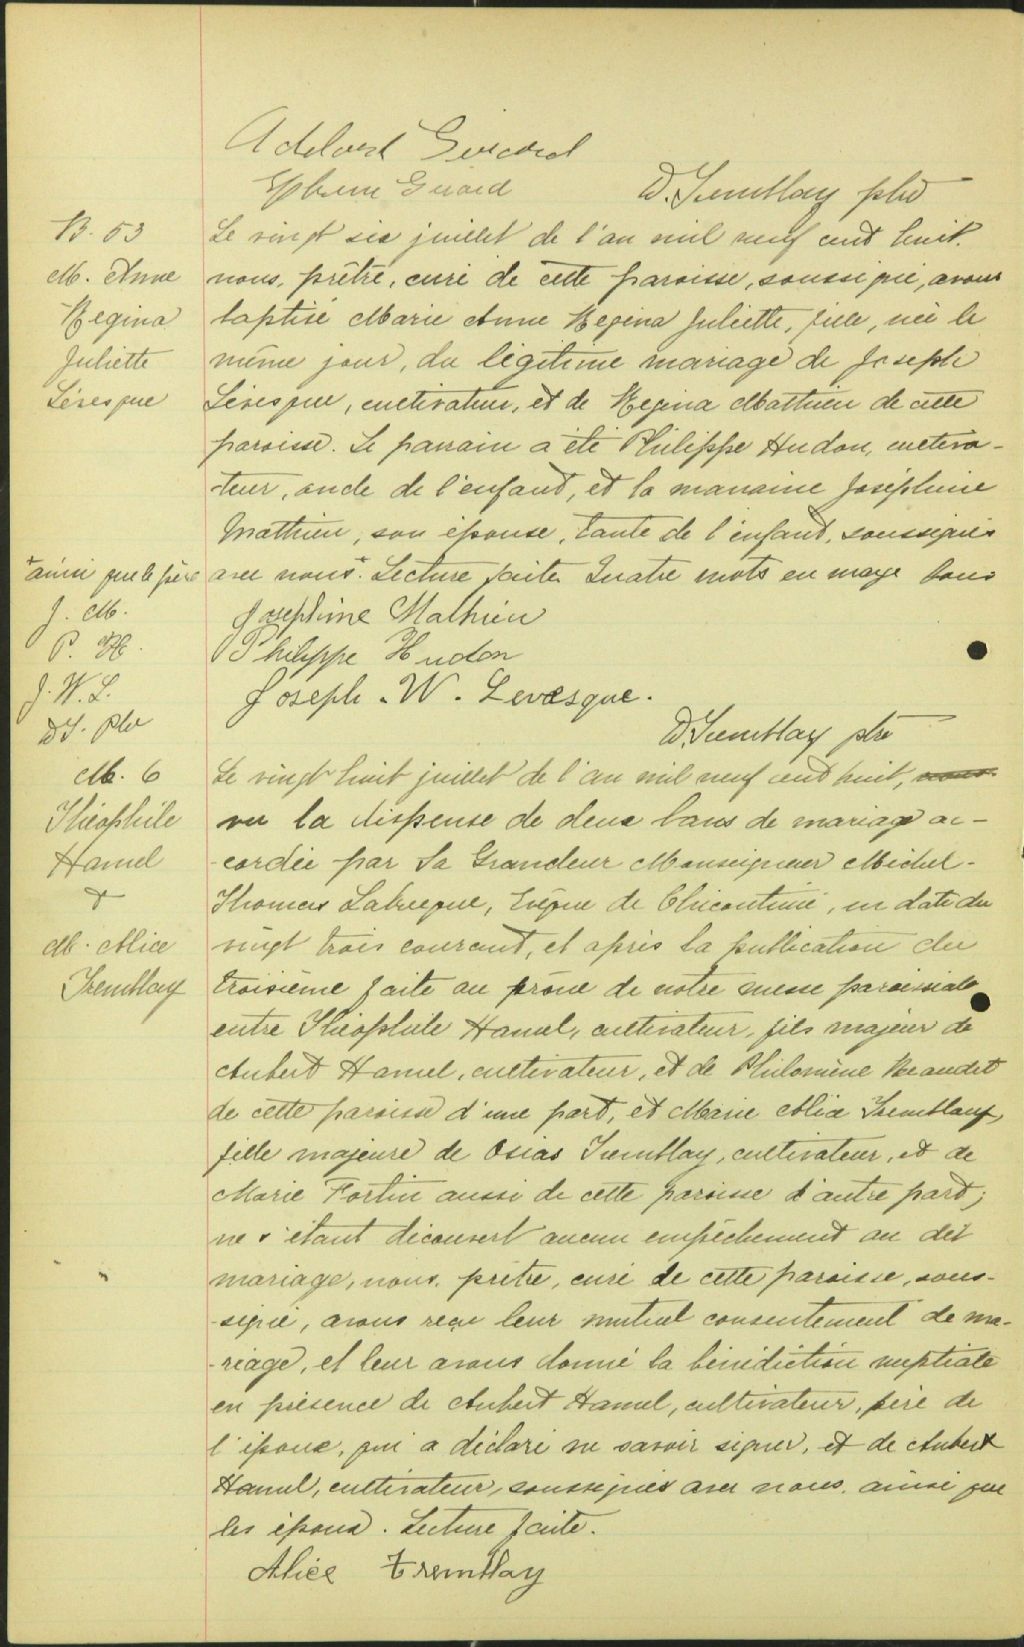 Adelard Girard
Girard D. Tremblay ptre
B. 53
M. Anne
Regina
Juliette
Lévesque
Le vingt six juillet de l'an mil neuf cent huit,
nous, prêtre, curé de cette paroisse, soussigné, avons
baptisé Marie Anne Regina Juliette, fille, née le
même jour, du légitime mariage de Joseph
Lévesque, cultivateur, et de Regina Mathieu de cette
paroisse. Le parrain a été Philippe Hudon, cultiva-
-teur, oncle de l'enfant, et la marraine Joséphine
Mathieu, son épouse, tante de l'enfant, soussignés
avec nous+. Lecture faite. Quatre mots en marge bons
+ainsi que le père
J. M.
P. H.
J. W. L.
D T. Ptr
Josephine Mathieu
Philippe Hudon
Joseph . W . Levesque.
D. Tremblay ptre
M. 6
Théophile
Hamel
&
M. Alice
Tremblay
Le vingt huit juillet de l'an mil neuf cent huit, nous
vu la dispense de deux bans de mariage ac-
-cordée par Sa Grandeur Monseigneur Michel-
Thomas Labrecque, Evêque de Chicoutimi, en date du
vingt trois courant, et après la publication du
troisième faite au prône de notre messe paroissiale
entre Théophile Hamel, cultivateur, fils majeur de
Aubert Hamel, cultivateur, et de Philomène Beaudet
de cette paroisse d'une part, et Marie Alice Tremblay,
fille majeure de Osias Tremblay, cultivateur, et de
Marie Fortin aussi de cette paroisse d'autre part;
ne s'étant découvert aucun empêchement au dit
mariage, nous, prêtre, curé de cette paroisse, sous-
-signé, avons reçu leur mutuel consentement de ma-
-riage, et leur avons donné la bénédiction nuptiale
en présence de Aubert Hamel, cultivateur, père de
l'époux, qui a déclaré ne savoir signer, et de Aubert
Hamel, cultivateur, soussignés avec nous, ainsi que
les époux. Lecture faite.
Alice Tremblay